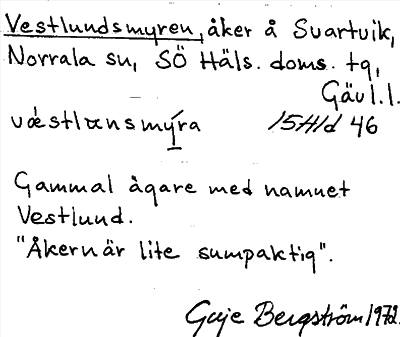 Vestlundsmyren, åker å Svartvik,
Norrala sn, SÖ Häls. doms. tg,
Gävl.l.
vǽstlɑnsmýra 15H1d 46
Gammal ägare med namnet
Vestlund.
"Åkern är lite sumpaktig".
Gaje Bergström 1972.